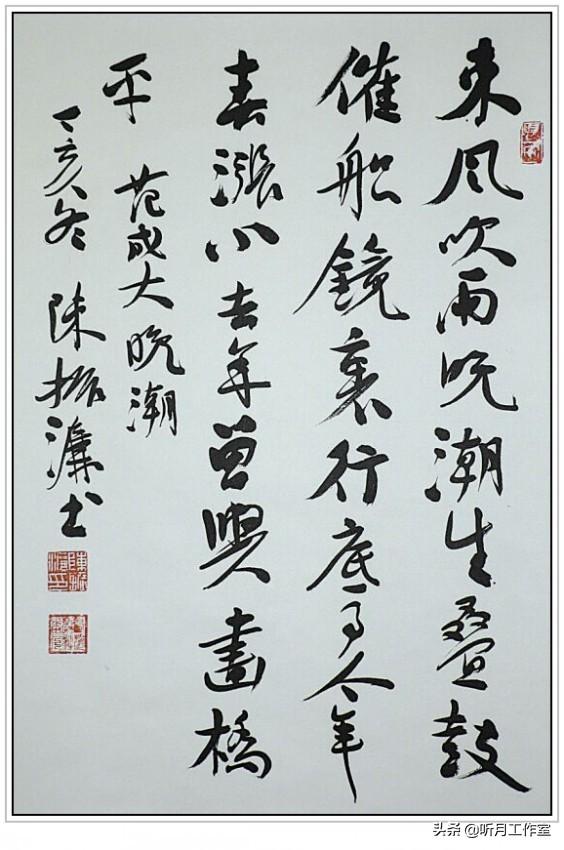 東風吹雨晚潮生疊鼓
催船鏡裏行底事今年
春漲小去年曾與畫橋
平 范成大晚潮
丁亥冬 陳振濂書
头条 @听月工作室